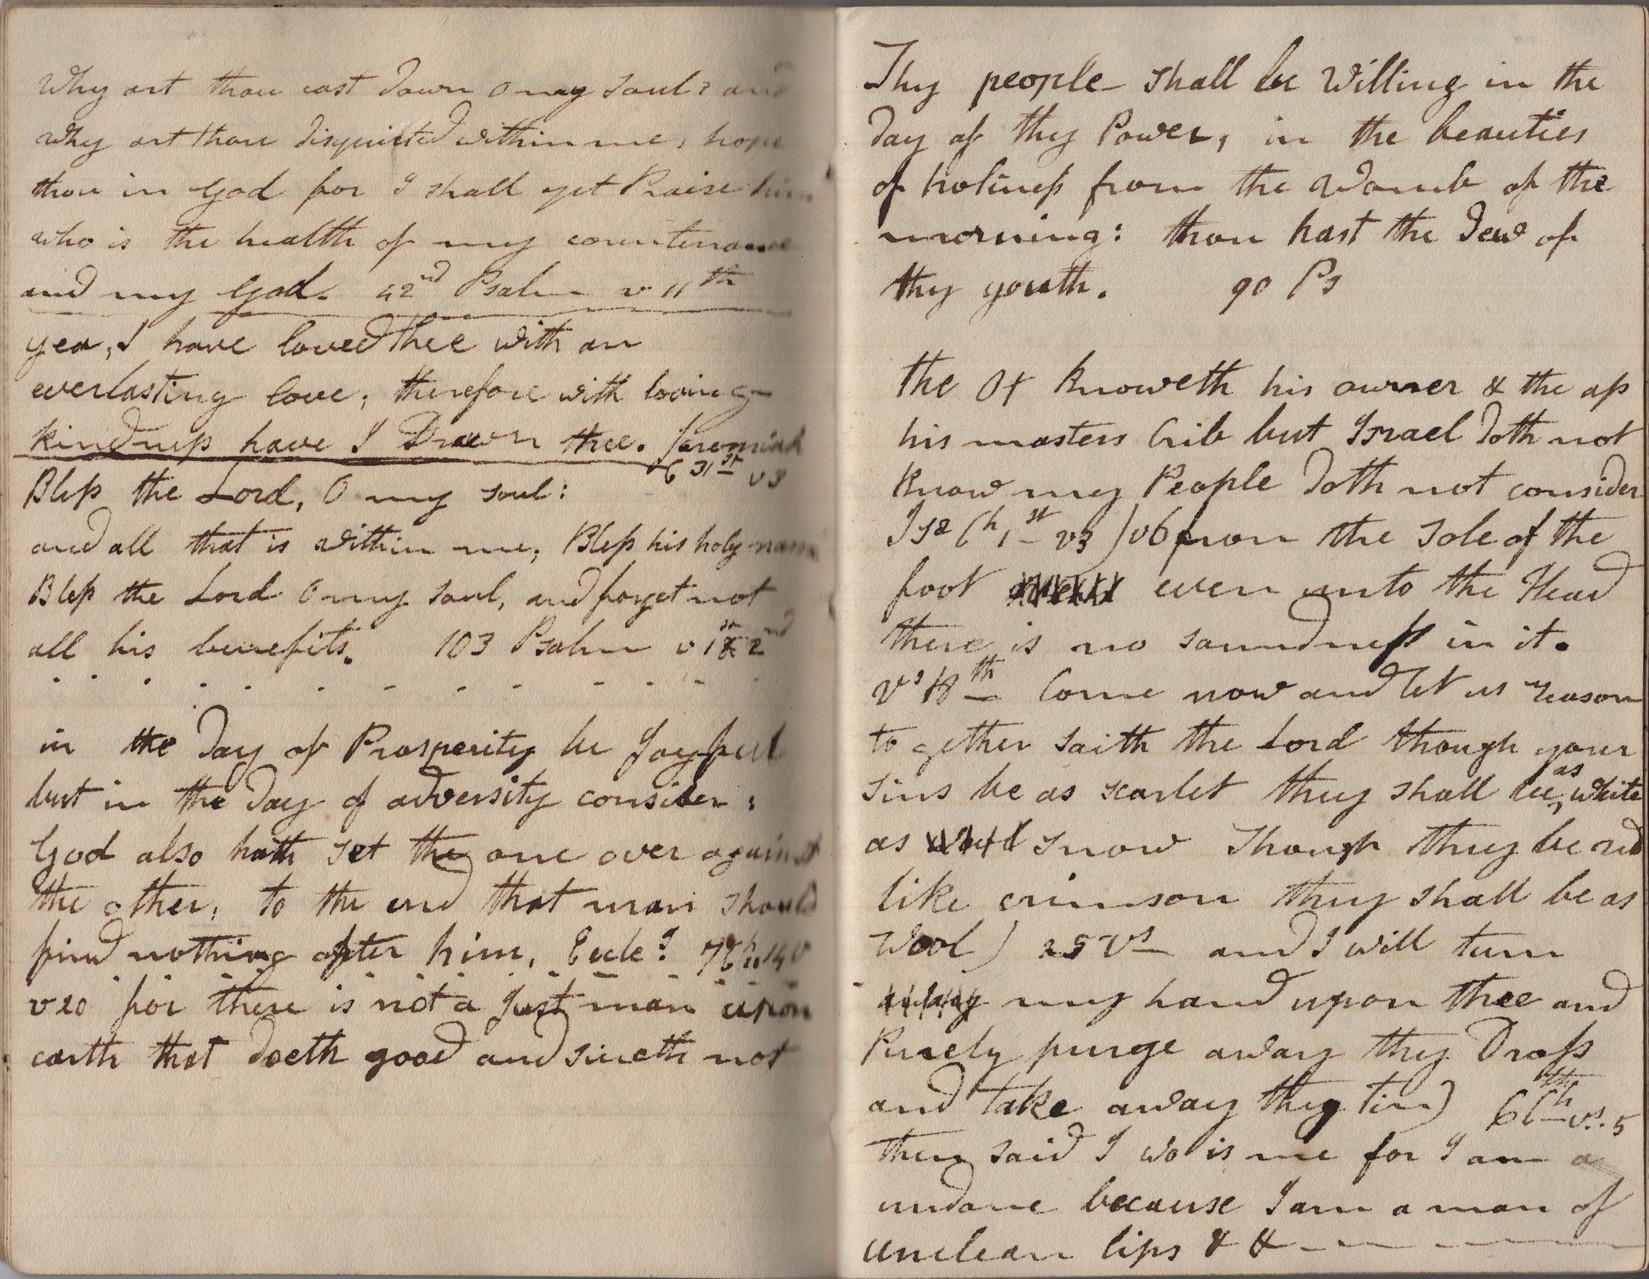 Why art thou cast down O my soul? and
why art thou disquieted within me, hope
thou in God for I shall yet Praise him
who is the health of my countenance
and my God. 42nd Psalm v 11th
yea, I have loved thee with an
everlasting love; therefore with loving-
kindness have I Drawn thee. Jeremiah
C 31st v3
Bless the Lord, O my soul:
and all that is within me, Bless his holy name
Bless the Lord O my soul, and forget not
all his benefits. 103 Psalm v 1st & 2nd
in the Day of Prosperity be Joyful
but in the Day of adversity consider:
God also hath set the one over against
the other, to the end that man should
find nothing after him, Eccle: 7Ch 14 v
v20 for there is not a Just man upon
earth that doeth good and sineth not
Thy people shall be Willing in the
Day of thy Power, in the beauties
of holiness from the Womb of the
morning: thou hast the Dew of
thy youth. 90 Ps
the Ox Knoweth his owner & the ass
his masters Crib but Israel Doth not
Know my People Doth not consider
Isa Ch 1st v3) v6 from the sole of the
foot even unto the Head
there is no soundness in it.
vs 18th Come now and let us reason
to gether saith the Lord though your
sins be as scarlet they shall be as white
as snow Though they be red
like crimson they shall be as
Wool) 25 Vs and I will turn
my hand upon thee and
Purely purge away thy Dross
and take away thy tin) 6th Ch vs. 5
then said I wo is me for I am a
undone because I am a man of
unclean lips & &